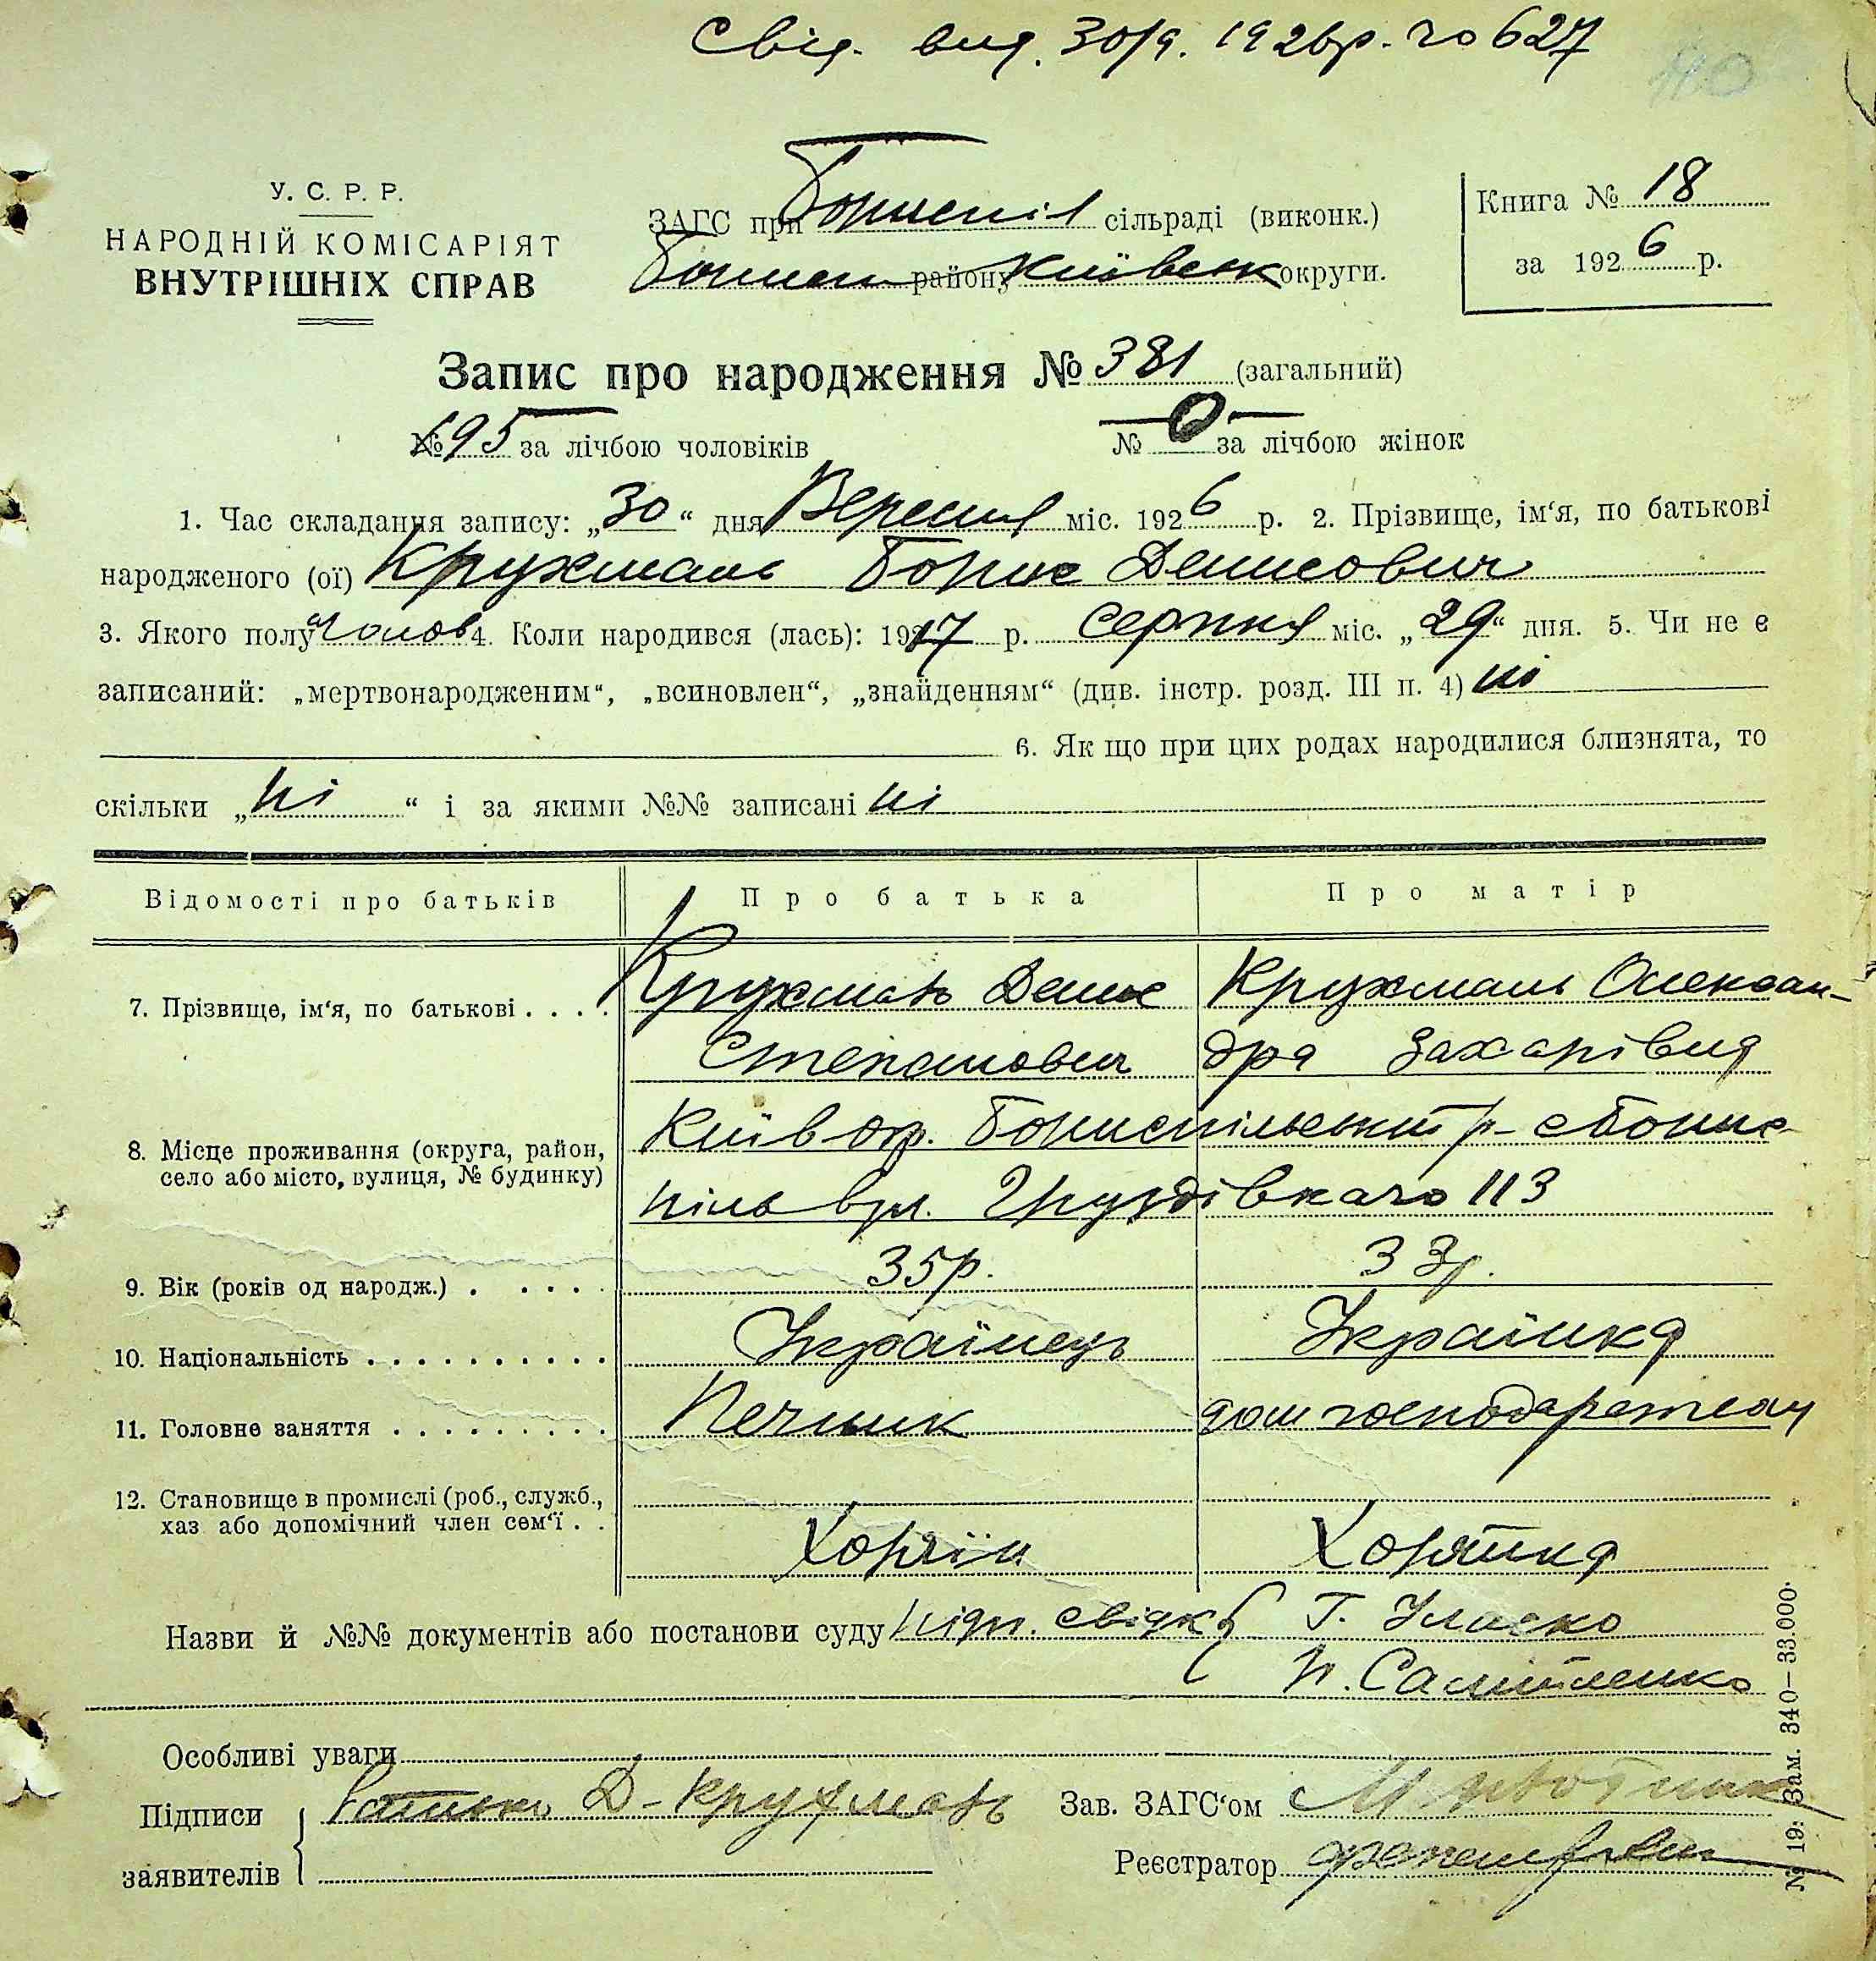 Свід. вид. 30/9. 1926р. за 627
110
У. С. Р. Р.
НАРОДНІЙ КОМІСАРІЯТ
ВНУТРІШНІХ СПРАВ
ЗАГС при Бориспіл сільраді (виконк.)
Борисп району Київськ округи.
Книга № 18
за 1926 р.
Запис про народження № 381 (загальний)
№ 195 за лічбою чоловіків
№ -0- за лічбою жінок
1. Час складання запису: „30“ дня Вересня міс. 1926 р. 2. Прізвище, ім‘я, по батькові
народженого (ої) Кружмань Борис Денисович
3. Якого полу чолов 4. Коли народився (лась): 1917 р. Серпня міс. „29“ дня. 5. Чи не є
записаний: „мертвонародженим“, „всиновлен“, „знайденням“ (див. інстр. розд. III п. 4) ні
6. Як що при цих родах народилися близнята, то
скільки „ні“ і за якими №№ записані ні
Відомості про батьків
Про батька
Про матір
7. Прізвище, ім‘я, по батькові
Кружмань Денис
Степанович
Кружмань Олексан-
дра Захарівна
8. Місце проживання (округа, район,
село або місто, вулиця, № будинку)
Київ окр. Бориспільський р- с Борис-
піль вул. 113
9. Вік (років од народж.)
35р.
33р.
10. Національність
Українець
Українка
11. Головне заняття
Печник
дом господарством
12. Становище в промислі (роб., служб.,
хаз або допомічний член сем‘ї
Хозяїн
Хозяйка
Назви й №№ документів або постанови суду підп. свідк Г.
П. Самійленко
Особливі уваги
Підписи
заявителів
батько Д-Кружмань
Зав. ЗАГС‘ом
Реєстратор
№ 19: Зам. 340—33.000.